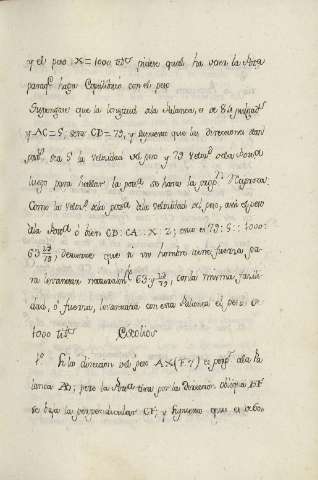 y el peso X=1000 lib.s pidese qual ha de ser la Pota
paraq.e haga Equilibrio con el peso
Supongase que la longitud dela Palanca, es de 84 pulgad.s
y AC=5, será CD=79, y supuesto que las direcciones son
será 5 la velocidad del peso y 79 veloc.d dela Pota
luego para hallar la pota se hará la prop.n Reciproca:
Como la veloc.d dela pota dela velocidad del peso, asi el peso
dela Pota ó bien CD: CA:: X: Z; esto es 79: 5:: 1000:
63 23/79; denuncie que si un hombre tiene fuerzas pa-
ra levantar naturalm.te 63 y 23/79, con la misma facili-
dad, ó fuerza, levantaria con esta Palanca el peso de
1000 lib.s Escolios
1.º Si la direccion del peso AX (F. 7) es perp.r ala Pa
lanca AD; pero la Pota tira por la Direccion obliqua DF
se baja la perpendicular CF; y supuesto que el